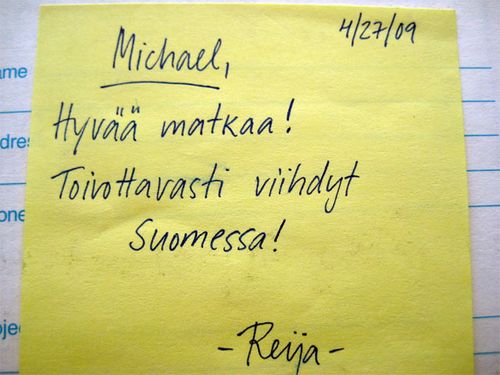 4/27/09
Michael,
Hyvää matkaa!
Toivottavasti viihdyt
Suomessa!
-Reija-
ame
dres
one
oje